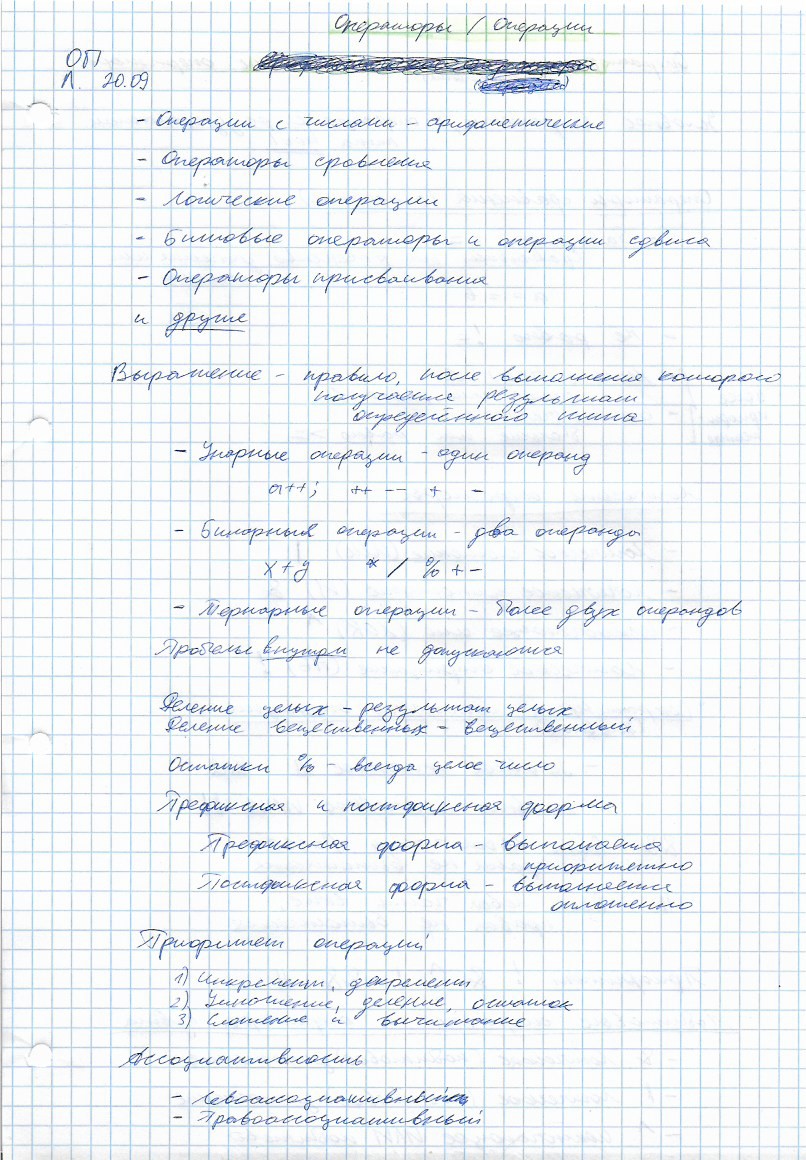 Операторы / Операции
ОП
Л. 20.09
- Операции с числами - арифметические
- Операторы сравнения
- Логические операции
- Битовые операторы и операции сдвига
- Операторы присваивания
и другие
Выражение - правило, после выполнения которого
получается результат
определённого типа
- Унарные операции - один операнд
a++; ++ -- + -
- Бинарные операции - два операнда
x+y * / % + -
- Тернарные операции - более двух операндов
Пробелы внутри не допускаются
Деление целых - результат целых
Деление вещественных - вещественный
Остатки % - всегда целое число
Префиксная и постфиксная форма
Префиксная форма - выполняется
приоритетно
Постфиксная форма - выполняется
отложенно
Приоритет операций
1) Инкремент, декремент
2) Умножение, деление, остаток
3) Сложение и вычитание
Ассоциативность
- Левоассоциативный
- Правоассоциативный